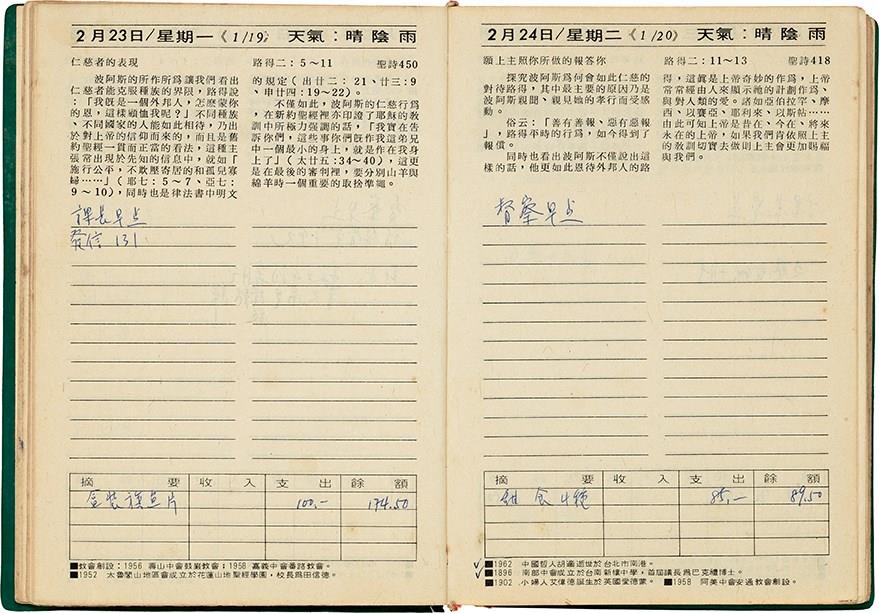 2月23日/星期一《1/19》 天氣：晴陰雨
仁慈者的表現
路得二：5～11 聖詩450
波阿斯的所作所爲讓我們看出
仁慈者能克服種族的界限，路得說
：「我既是一個外邦人，怎麽蒙你
的恩，這樣顧恤我呢？」不同種族
、不同國家的人能如此相待，乃出
於對上帝的信仰而來的，而且是舊
約聖經一貫而正當的看法，這種主
張常出現於先知的信息中，就如「
施行公平，不欺壓寄居的和孤兒寡
婦……」（耶七：5～7、亞七：
9～10），同時也是律法書中明文
的規定（出廿二：21、廿三：9
、申廿四：19～22）。
不僅如此，波阿斯的仁慈行爲
，在新約聖經裡亦印證了耶穌的教
訓中所極力強調的話，「我實在告
訴你們，這些事你們既作我這弟兄
中一個最小的身上，就是作在我身
上了」（太廿五：34～40），這更
是在最後的審判裡，要分別山羊與
綿羊時一個重要的取捨準繩。
課長早点
發信 131
摘要 收入 支出 餘額
100.- 174.50
■教會創設：1956 壽山中會鼓岩教會；1958 嘉義中會番路教會。
■1952 太魯閣山地區會成立於花蓮山地聖經學園，校長爲田信德。
2月24日/星期二《1/20》 天氣：晴陰雨
願上主照你所做的報答你
路得二：11～13 聖詩418
探究波阿斯爲何會如此仁慈的
對待路得，其中最主要的原因乃是
波阿斯親聞、親見她的孝行而受感
動。
俗云：「善有善報、惡有惡報
」，路得平時的行爲，如今得到了
報償。
同時也看出波阿斯不僅說出這
樣的話，他更如此恩待外邦人的路
得，這眞是上帝奇妙的作爲，上帝
常常經由人來顯示祂的計劃作爲、
與對人類的愛。諸如亞伯拉罕、摩
西、以賽亞、耶利米、以斯帖……
由此可知上帝是昔在、今在、將來
永在的上帝，如果我們肯依照上主
的教訓切實去做則上主會更加賜福
與我們。
督察早点
摘要 收入 支出 餘額
85.- 89.50
■1962 中國哲人胡適逝世於台北市南港。
■1896 南部中會成立於台南新樓中學，首屆議長爲巴克禮博士。
■1902 小婦人艾偉德誕生於英國愛德蒙。 ■1958 阿美中會安通教會創設。